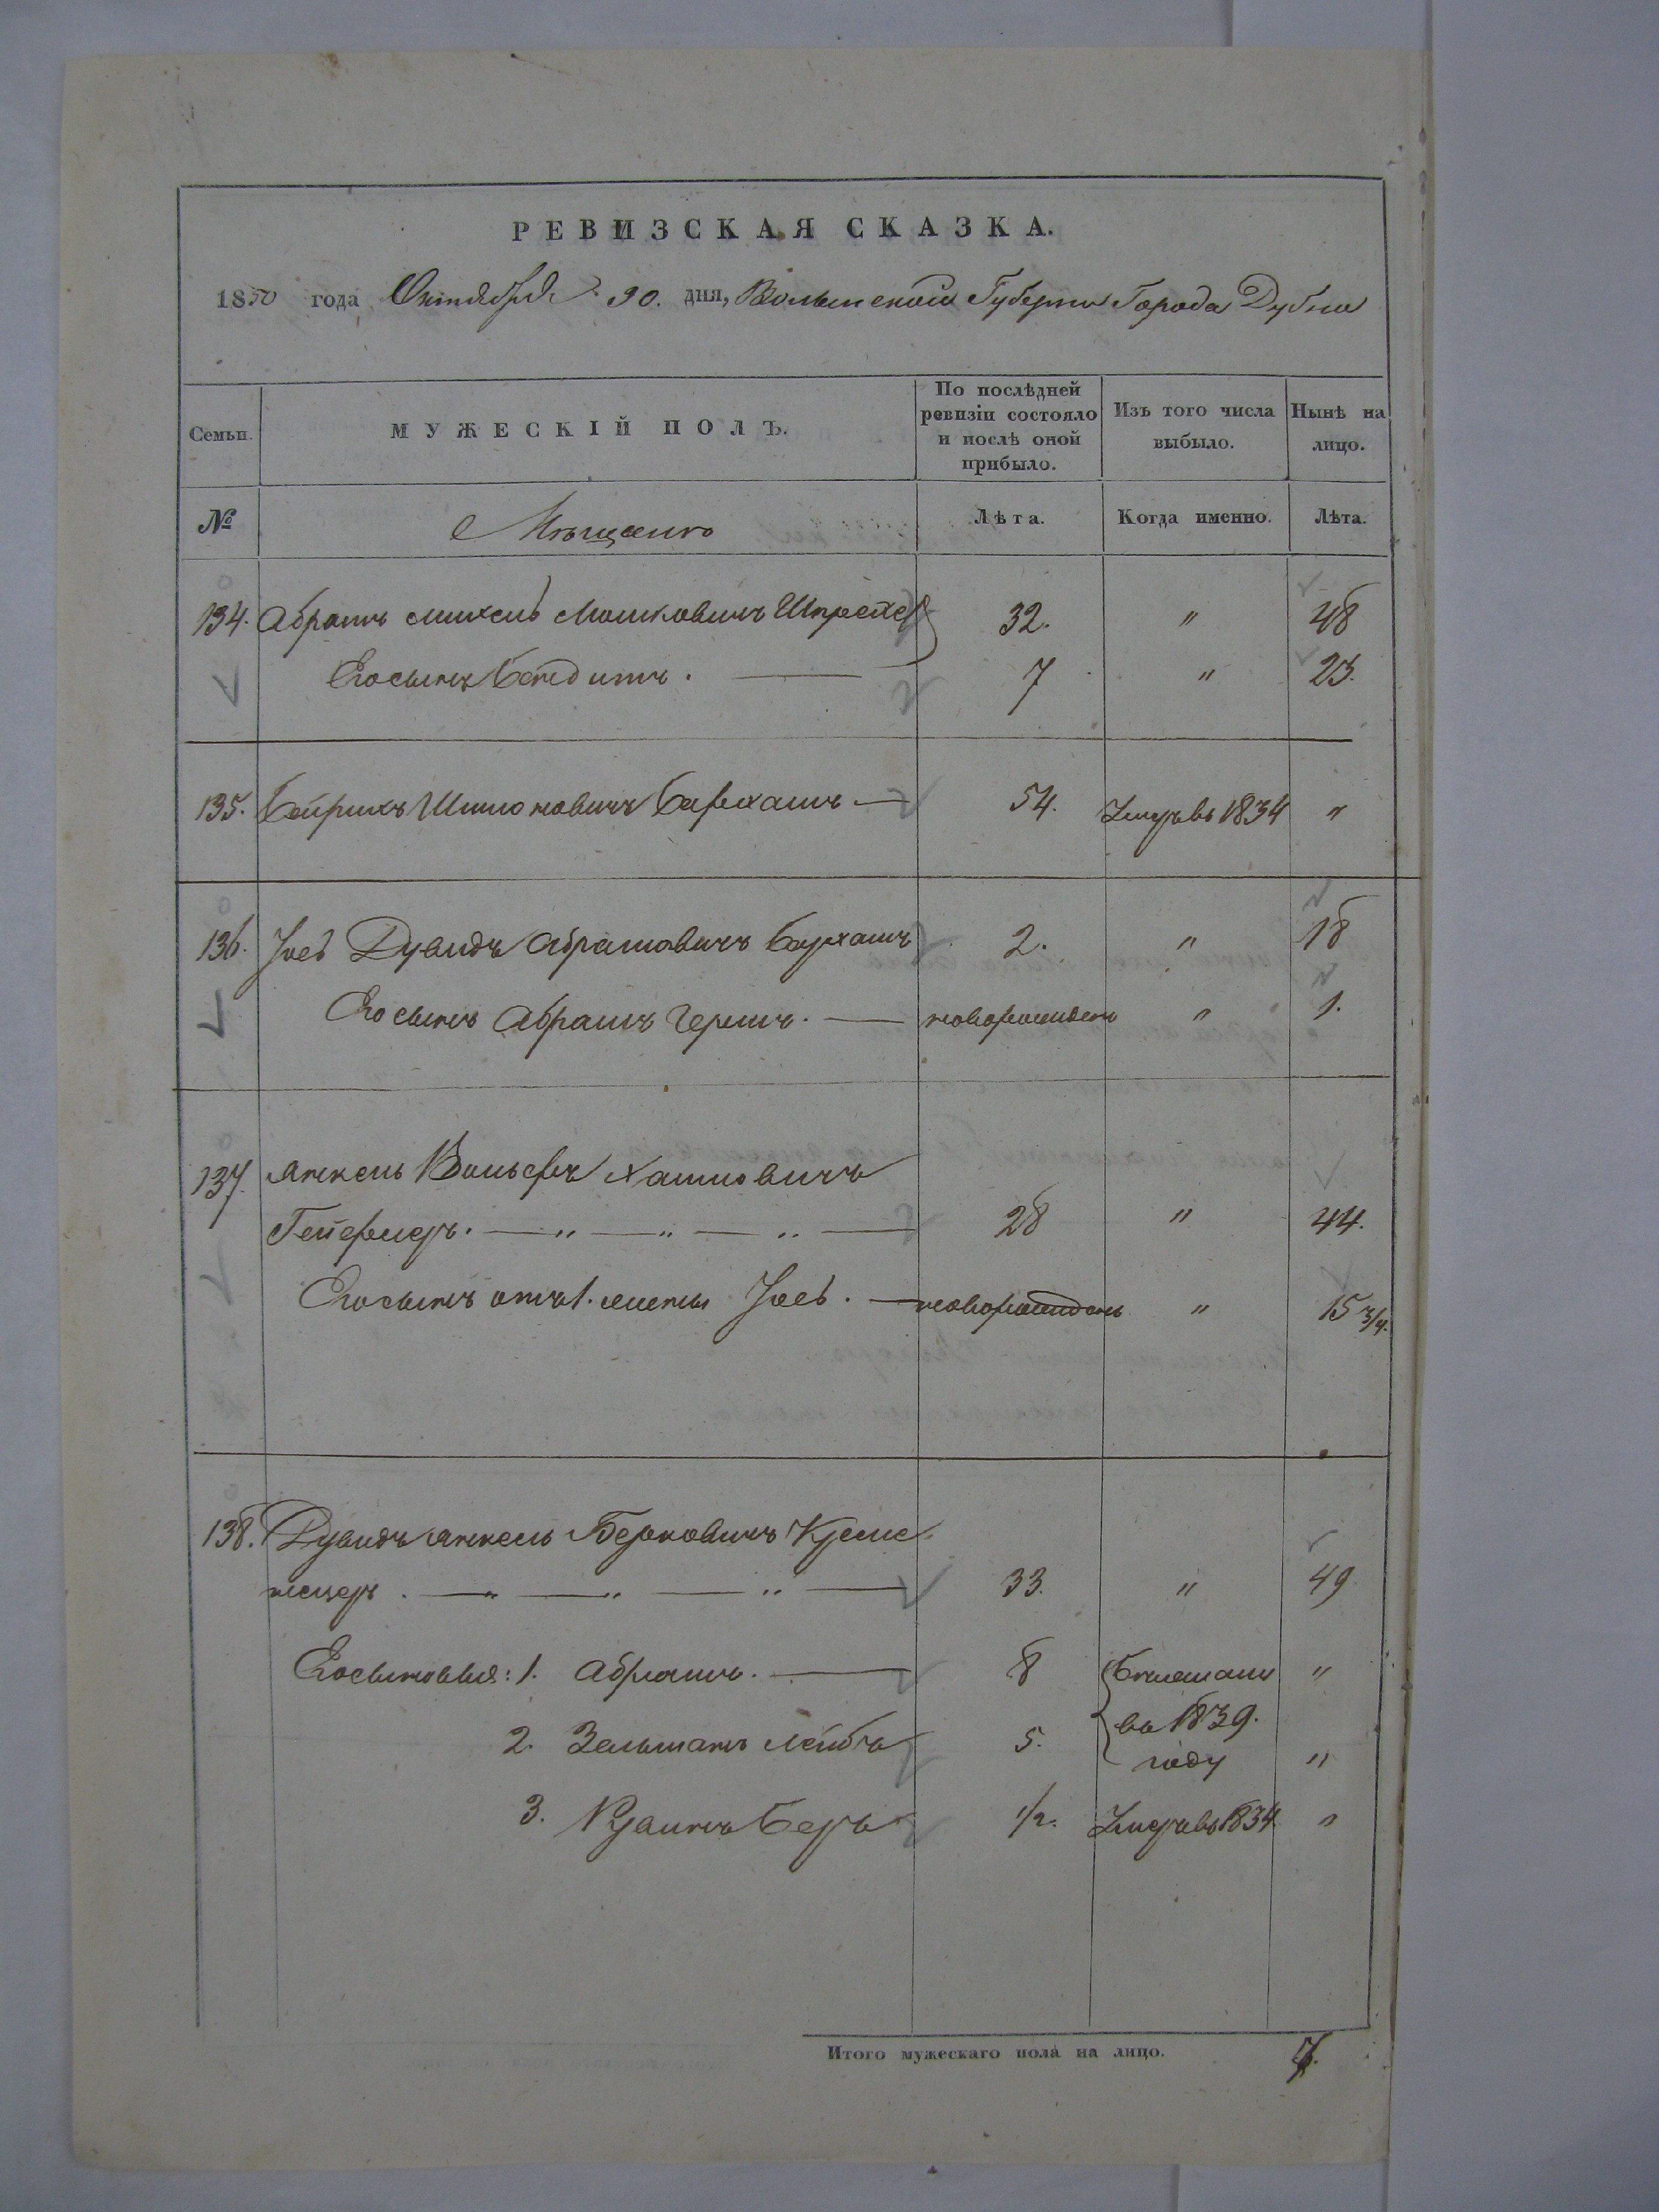 РЕВИЗСКАЯ СКАЗКА.
1850 года Октября 30. дня, Волынской Губернии Города Дубно
Семьи. МУЖЕСКІЙ ПОЛЪ. По послѣдней ревизіи состояло и послѣ оной прибыло. Изъ того числа выбыло. Нынѣ на лицо.
№ Мѣщане Лѣта. Когда именно. Лѣта.
134. Абрамъ Михель Мошковичъ 32. " 48
Его сынъ 7 " 23.
135. Берхамъ — 54. Умеръ въ 1834 "
136. Іось Дувидъ Абрамовичъ Берхамъ 2. " 18
Его сынъ Абрамъ Гершъ. — новорожденъ " 1.
137. Янкель Вольфъ Хаимовичъ
— " — " — " — 28 " 44.
Его сынъ отъ 1. жены Іось. — новорожденъ " 15 3/4.
138. Дувидъ Янкель Берковичъ Креме
нецеръ . — " — " — " — 33. " 49
Его сыновья: 1. Абрамъ. — 8 "
2. Зельманъ Лейба 5. въ 1839.
году "
3. Беръ 1/2. Умеръ въ 1834 "
Итого мужескаго пола на лицо. 7.